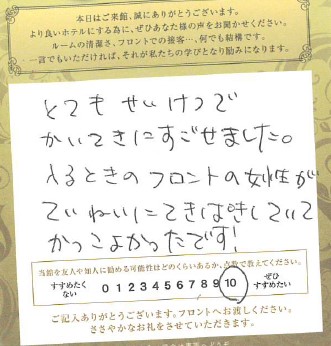 本日はご来館、誠にありがとうございます。
より良いホテルにする為に、ぜひあなた様の声をお聞かせください。
ルームの清潔さ、フロントでの接客…、何でも結構です。
一言でもいただければ、それが私たちの学びとなり励みになります。
とても せいけつで
かいてきにすごせました。
入るときの フロントの女性が
ていねいに てきぱきしていて
かっこよかったです!
当館を友人や知人に勧める可能性はどのくらいあるか、点数で教えてください。
すすめたくない 0 1 2 3 4 5 6 7 8 9 10 ぜひすすめたい
ご記入ありがとうございます。フロントへお渡しください。
ささやかなお礼をさせていただきます。